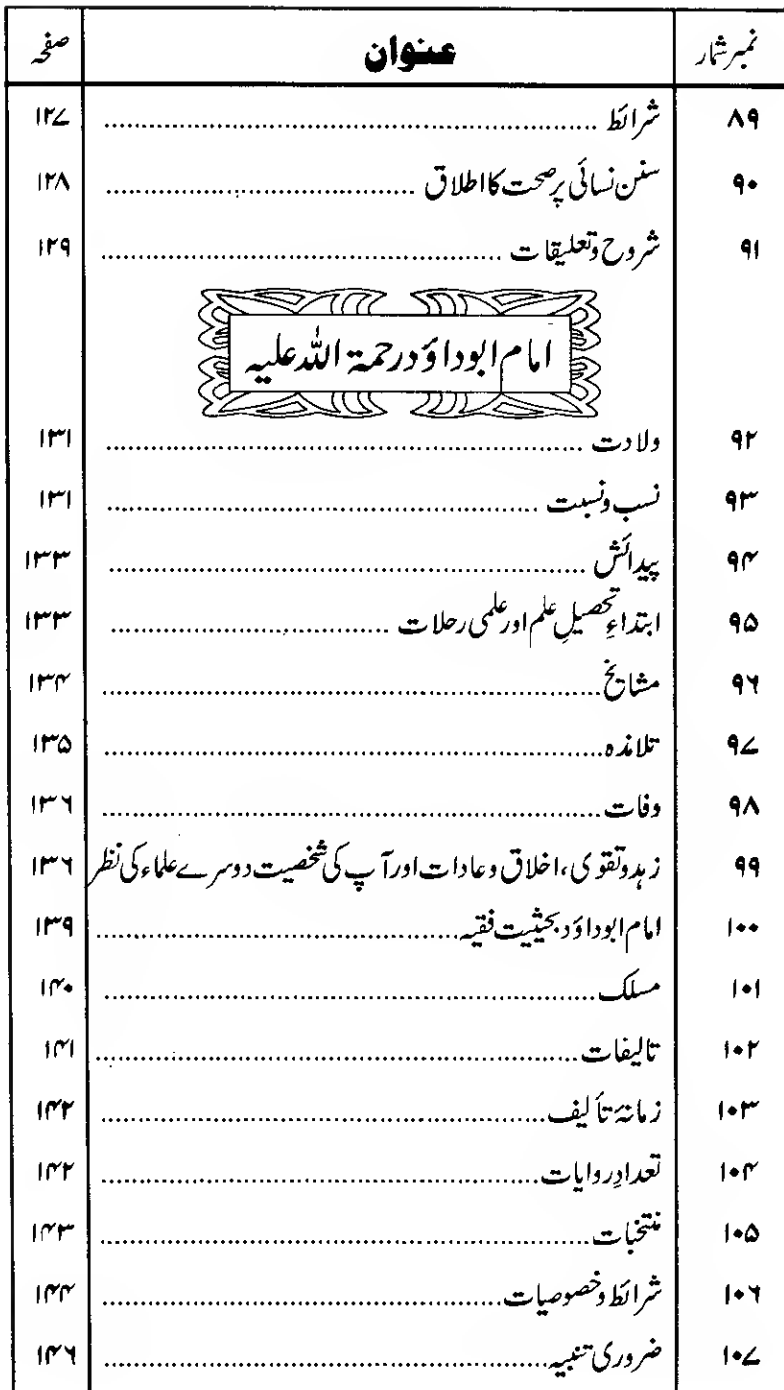 نمبر شمار عنوان صفحہ
۸۹ شرائط ۱۲۷
۹۰ سنن نسائی پر صحت کا اطلاق ۱۲۸
۹۱ شروح وتعلیقات ۱۲۹
امام ابوداؤد رحمۃ اللہ علیہ
۹۲ ولادت ۱۳۱
۹۳ نسب ونسبت ۱۳۱
۹۴ پیدائش ۱۳۳
۹۵ ابتداءِ تحصیلِ علم اور علمی رحلات ۱۳۳
۹۶ مشایخ ۱۳۴
۹۷ تلامذہ ۱۳۵
۹۸ وفات ۱۳۶
۹۹ زہد وتقوی، اخلاق وعادات اور آپ کی شخصیت دوسرے علماء کی نظر ۱۳۶
۱۰۰ امام ابوداؤد بحیثیت فقیہ ۱۳۹
۱۰۱ مسلک ۱۴۰
۱۰۲ تالیفات ۱۴۱
۱۰۳ زمانۂ تألیف ۱۴۲
۱۰۴ تعدادِ روایات ۱۴۲
۱۰۵ منتخبات ۱۴۳
۱۰۶ شرائط وخصوصیات ۱۴۴
۱۰۷ ضروری تنبیہ ۱۴۶